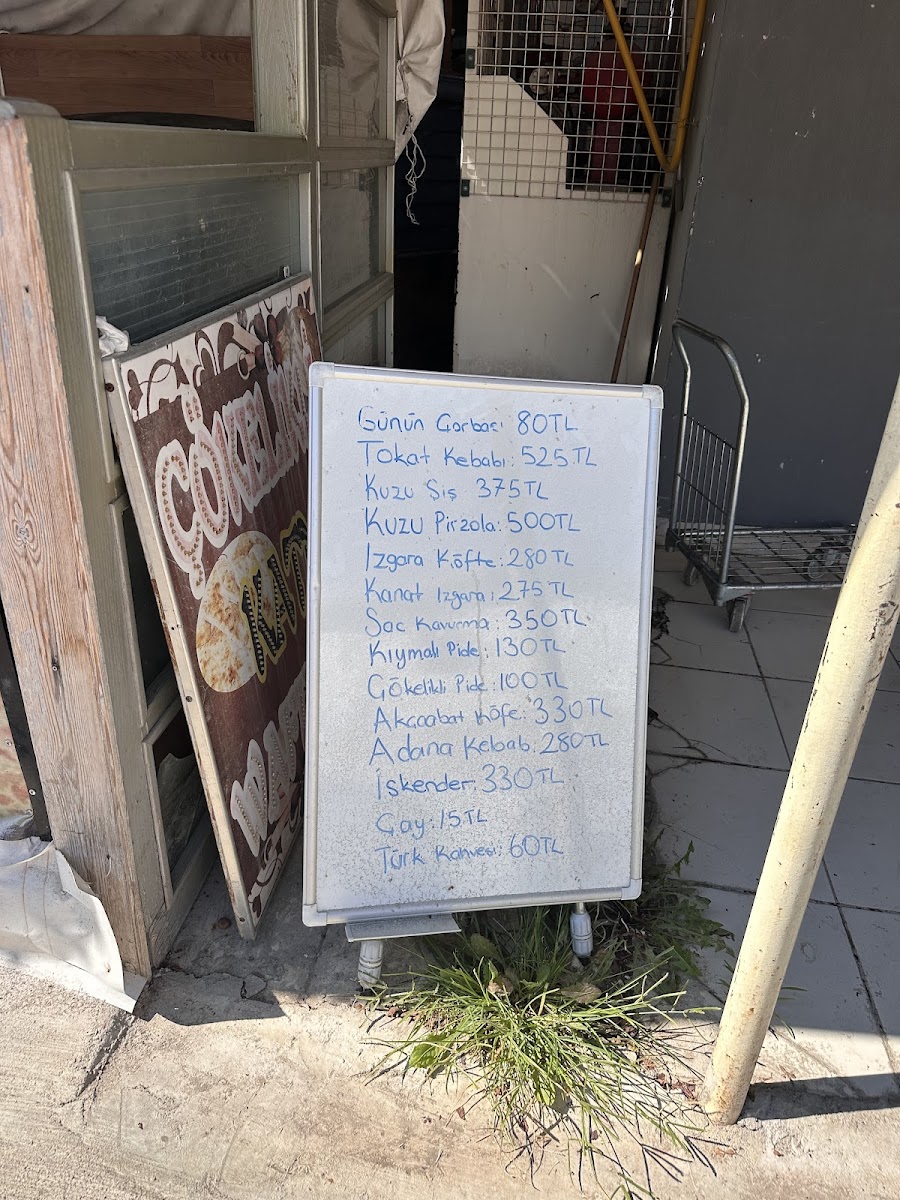 ÇÖKELEK
MANTI
Günün Çorbası 80TL
Tokat Kebabı: 525TL
Kuzu Şiş 375TL
Kuzu Pirzola: 500TL
Izgara Köfte: 280TL
Kanat Izgara: 275TL
Saç Kavurma: 350TL
Kıymalı Pide: 130TL
Çökelikli Pide: 100TL
Akçaabat Köfe: 330TL
Adana Kebab: 280TL
İskender: 330TL
Çay: 15TL
Türk Kahvesi: 60TL